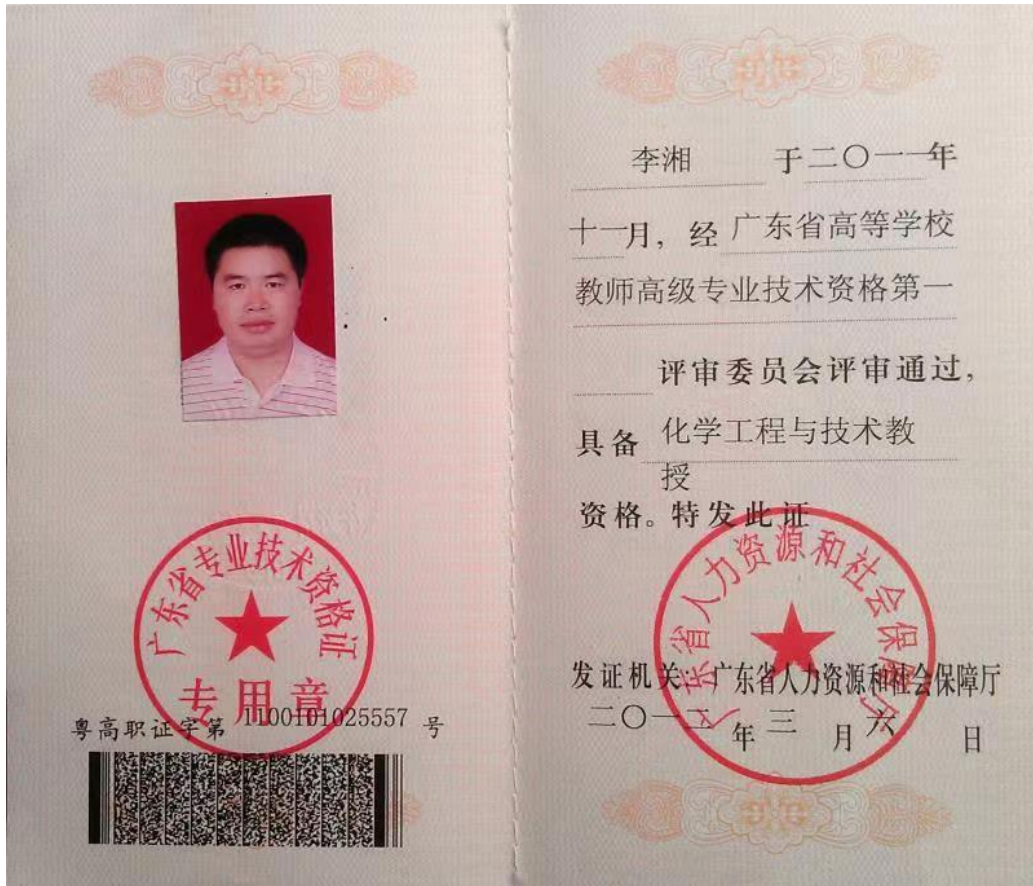 广东省专业技术资格证
专用章
粤高职证字第 1100101025557 号
李湘 于二〇一一年
十一月，经 广东省高等学校
教师高级专业技术资格第一
评审委员会评审通过，
具备 化学工程与技术教
授
资格。特发此证
广东省人力资源和社会保障厅
发证机关：广东省人力资源和社会保障厅
二〇一二年三月六日